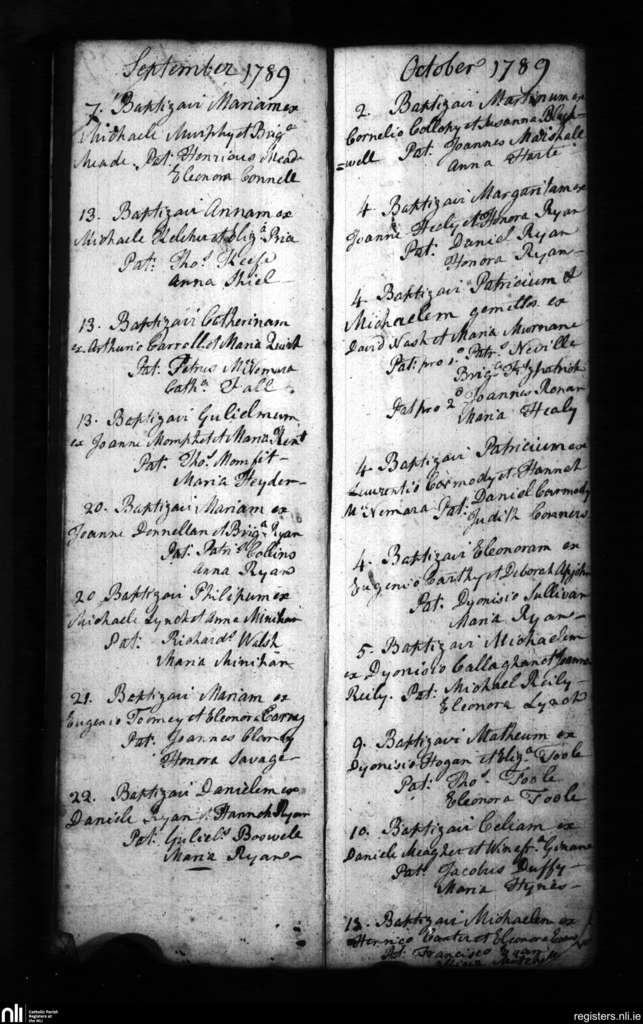 September 1789
7. Baptizavi Mariam ex
Michaele Murphy et Brigᵃ
Meade. Pat: Henricus Meade
Eleonora Connell
13. Baptizavi Annam ex
Michaele Kelcher et Elizᵃ Pria
Pat: Thoˢ Keefe
Anna Shiel
13. Baptizavi Catherinam
ex Arthurio Carroll et Maria
Pat. Petrus McNemara
Cathᵃ Fall
13. Baptizavi Gulielmum
ex Joanne et Maria
Pat. Thoˢ Momfit
Maria Heyder
20. Baptizavi Mariam ex
Joanne Donnellan et Brigᵃ Ryan
Pat: Patrᵒ Collins
Anna Ryan
20 Baptizavi Philipum ex
Michaele Lynch et Anna Minihan
Pat: Richardˢ Walsh
Maria Minihan
21. Baptizavi Mariam ex
Eugenio Toomey et Eleonora Carney
Pat. Joannes Clancy
Honora Savage
22. Baptizavi Danielem ex
Daniele Ryan & Hannah Ryan
Pat: Gulielˢ Boswell
Maria Ryan
October 1789
2. Baptizavi Martinum ex
Cornelio Collopy et Susanna Black-
=well Pat. Joannes Marshall
Anna Harte
4 Baptizavi Margaritam ex
Joanne Healy et Honora Ryan
Pat: Daniel Ryan
Honora Ryan
4 Baptizavi Patricium &
Michaelem gemillos ex
David Nash et Maria Murnane
Pat: pro 1ᵒ Patrˢ Neville
Brigᵃ Fitzpatrick
Pat pro 2ᵒ Joannes Ronan
Maria Healy
4 Baptizavi Patricium ex
Laurentio Carmody et Hannah
McNemara Pat: Daniel Carmody
Judith Conners
4. Baptizavi Eleonoram ex
Eugenio Carthy et Deborah Apjohn
Pat: Dyonisio Sullivan
Maria Ryan
5. Baptizavi Michaelem
ex Dyonisio Callaghan et Joanna
Reily. Pat: Michael Reily
Eleonora Lynch
9. Baptizavi Matheum ex
Dyonisio Hogan et Elizᵃ Toole
Pat: Thoˢ Toole
Eleonora Toole
10. Baptizavi Celiam ex
Daniele Meagher et Winefrᵃ
Pat: Jacobus Duffy
Maria Hynes
13. Baptizavi Michaelem ex
Henrico Carter et Eleonora
Pat: Francisco Ryan
nli Catholic Parish
Registers at
the NLI
registers.nli.ie